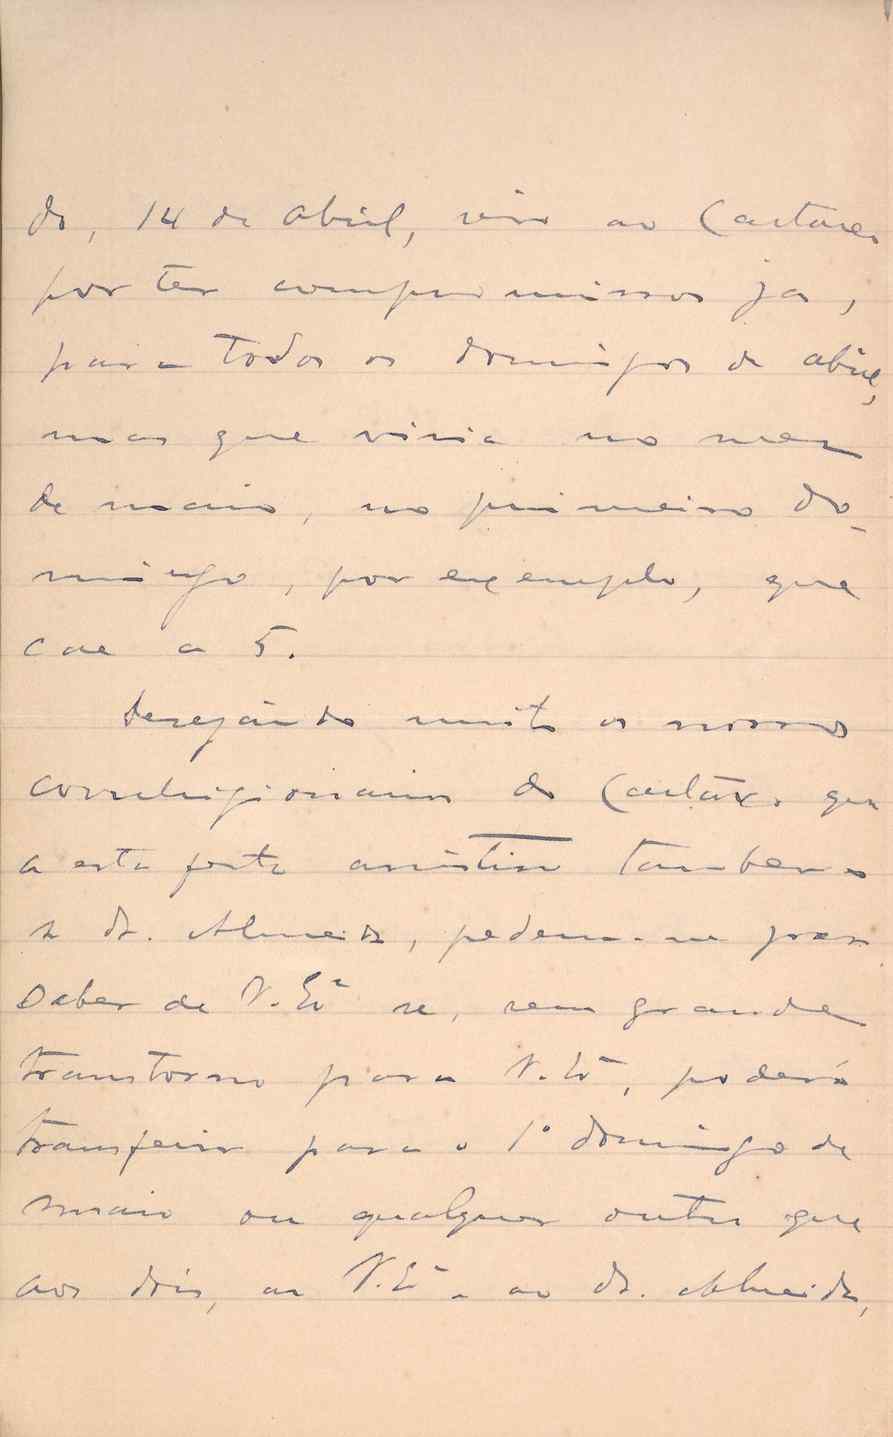 do, 14 de abril, vir ao Cartaxo
por ter compromissos já,
para todos os domingos de abril,
mas que viria no mez
de maio, no primeiro do-
mingo, por exemplo, que
cae a 5.
Desejando muito os nossos
correligionarios do Cartaxo que
a esta festa assistisse tambem
o dr. Almeida, pedem-me para
saber de V. Exª se, sem grande
transtorno para V. Exª, poderá
transferir para o 1º domingo de
maio ou qualquer outro que
aos dois, a V. Exª e ao dr. Almeida,